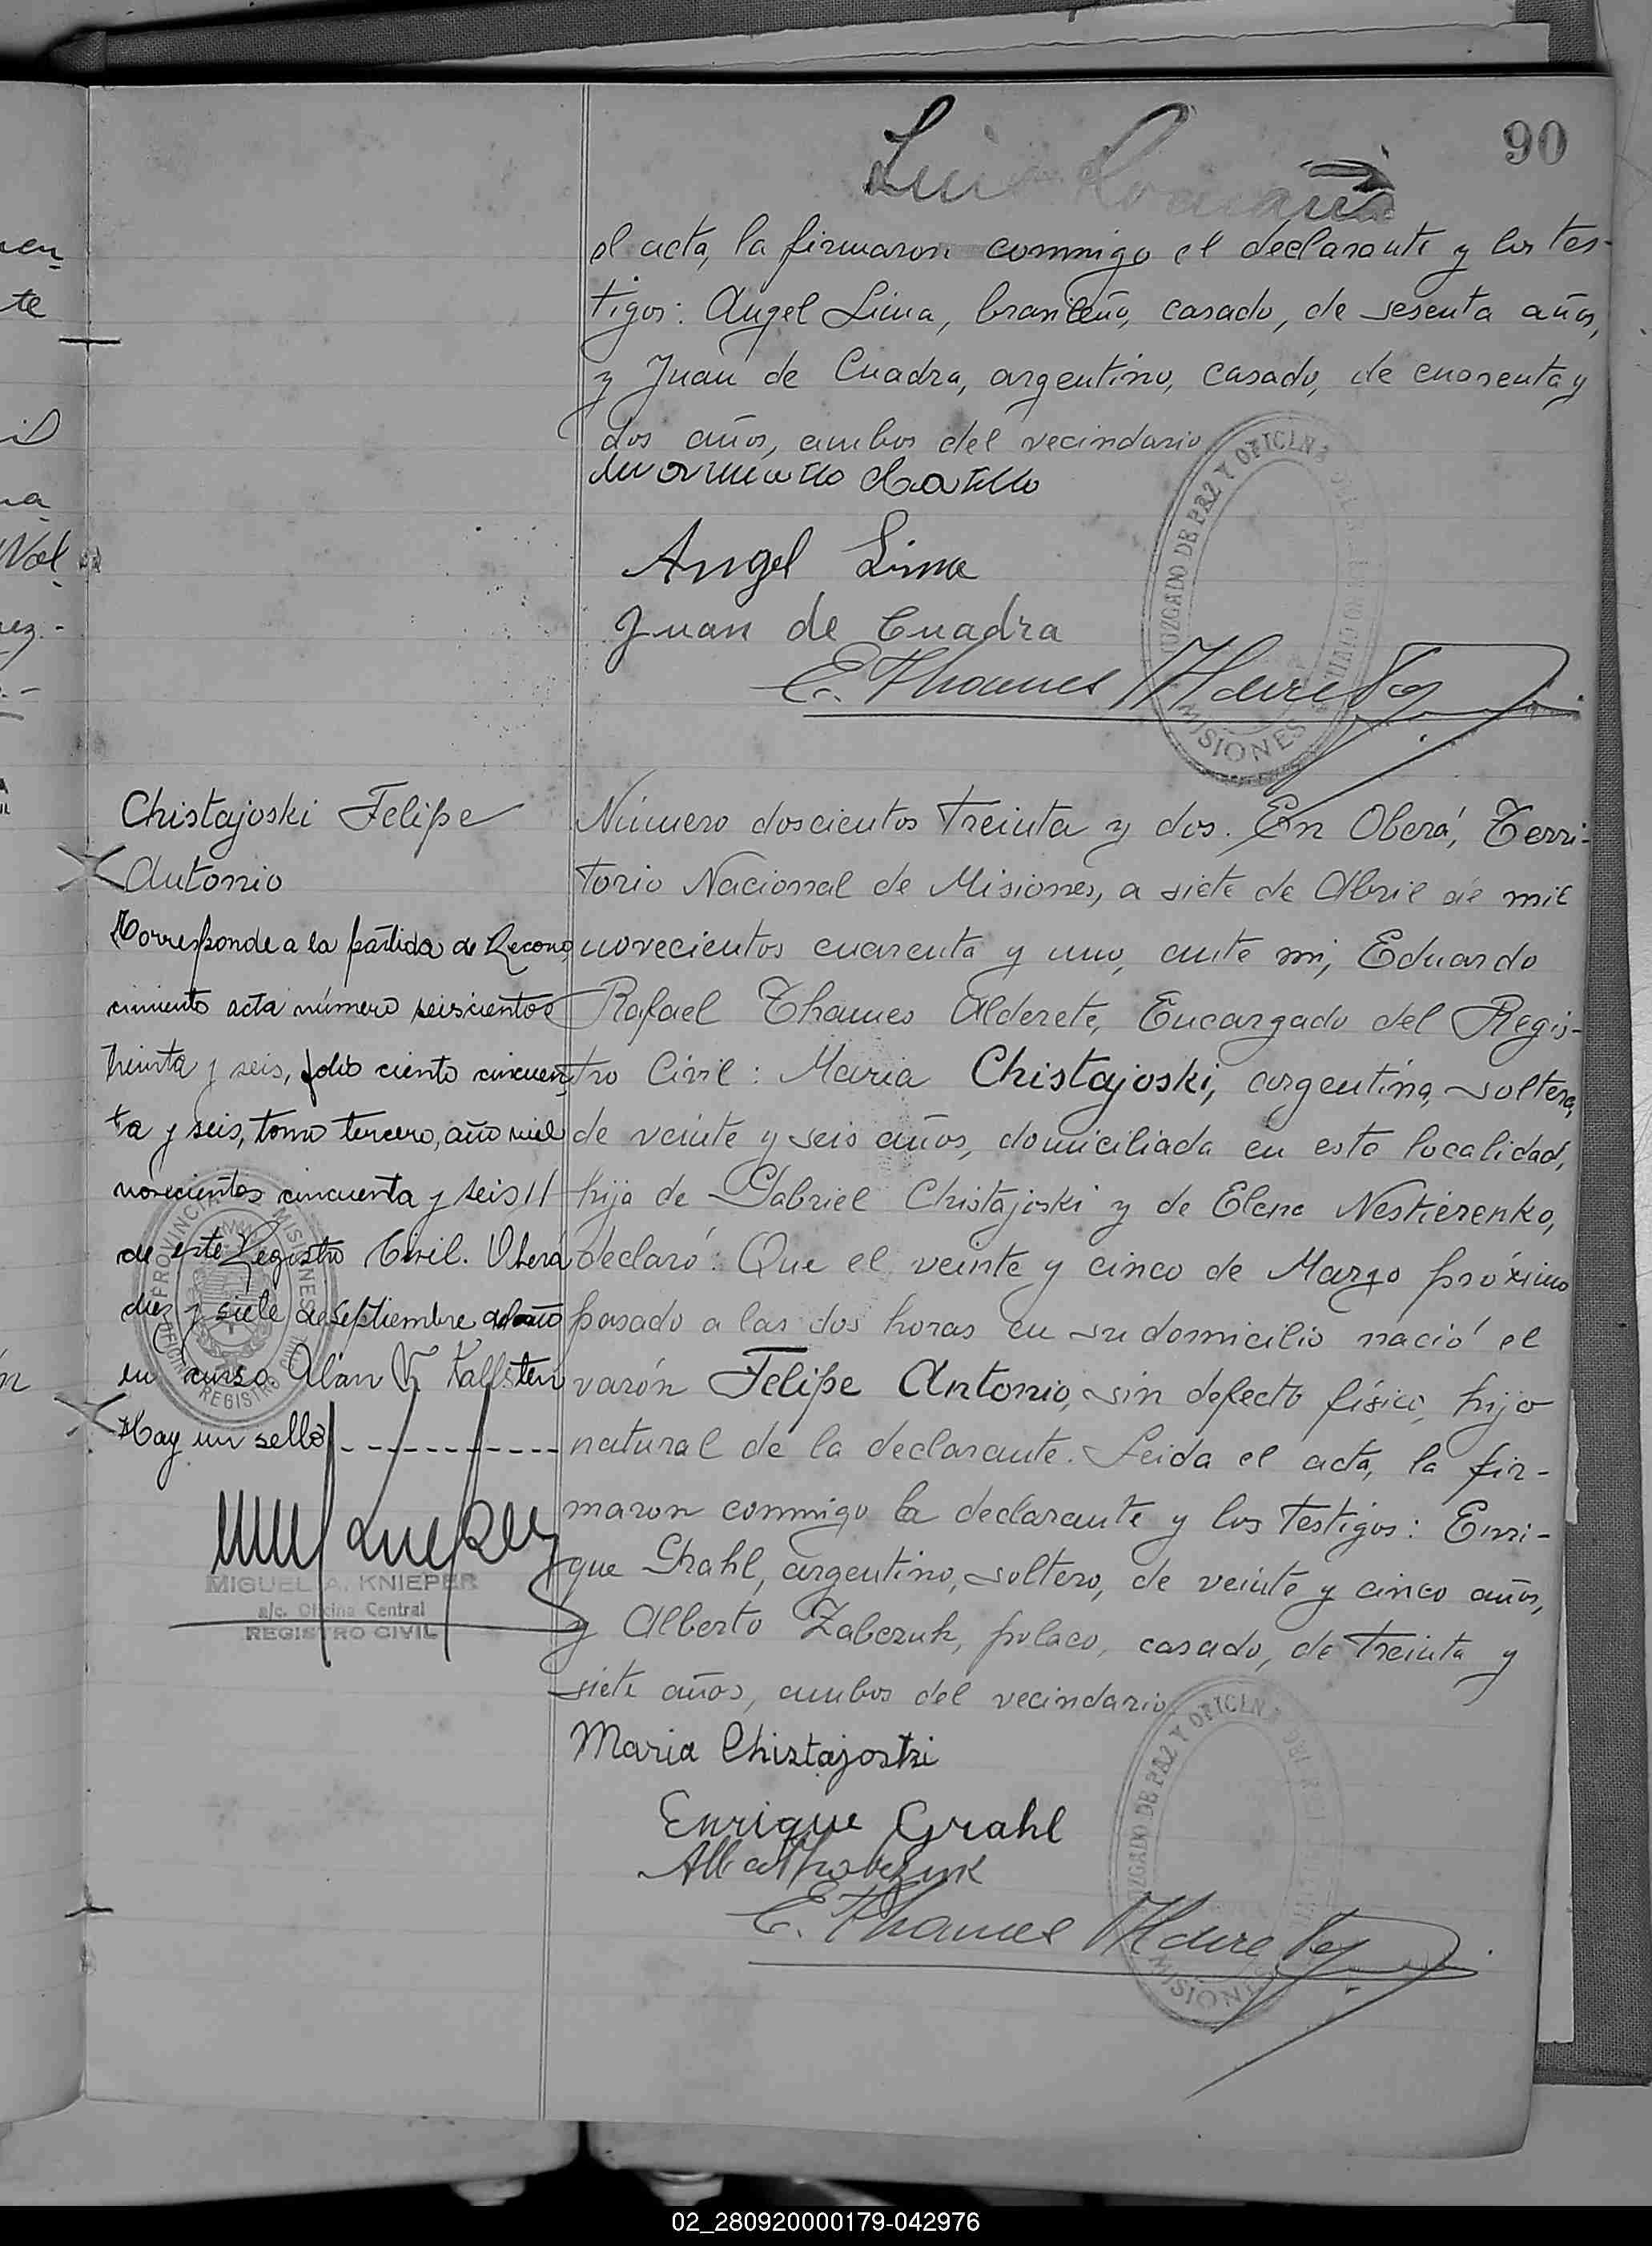 90
Luis Romano
el acta, la firmaron conmigo el declarante y los tes-
tigos: Angel Lima, brasileño, casado, de sesenta años,
y Juan de Cuadra, argentino, casado, de cuarenta y
dos años, ambos del vecindario
Castillo
Angel Lima
Juan de Cuadra
E. Thames Alderete
JUZGADO DE PAZ Y OFICINA
MISIONES
Chistajoski Felipe
Antonio
Corresponde a la partida de Recono
cimiento acta número seiscientos
treinta y seis, folio ciento cincuen
ta y seis, tomo tercero, año mil
novecientos cincuenta y seis //
de este Registro Civil. Oberá
diez y siete de Septiembre del año
en curso Alan V. Kallsten
Hay un sello
PROVINCIA DE MISIONES
OFICINA REGISTRO CIVIL
MIGUEL A. KNIEPER
a/c. Oficina Central
REGISTRO CIVIL
Número doscientos treinta y dos. En Oberá, Terri-
torio Nacional de Misiones, a siete de Abril de mil
novecientos cuarenta y uno, ante mi, Eduardo
Rafael Thames Alderete, Encargado del Regis-
tro Civil: Maria Chistajoski, argentina, soltera,
de veinte y seis años, domiciliada en esta localidad,
hija de Gabriel Chistajoski y de Elena Nestierenko,
declaró: Que el veinte y cinco de Marzo próximo
pasado a las dos horas en su domicilio nació el
varón Felipe Antonio, sin defecto físico, hijo
natural de la declarante. Leida el acta, la fir-
maron conmigo la declarante y los testigos: Enri-
que Grahl, argentino, soltero, de veinte y cinco años,
y Alberto Zabczuk, polaco, casado, de treinta y
siete años, ambos del vecindario
Maria Chistajoski
Enrique Grahl
E. Thames Alderete
JUZGADO DE PAZ Y OFICINA
MISIONES
02_280920000179-042976